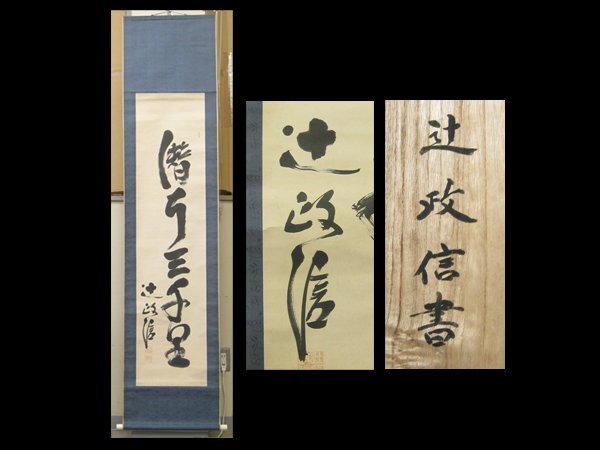 潜行三千里
辻政信
辻政信
辻政信書